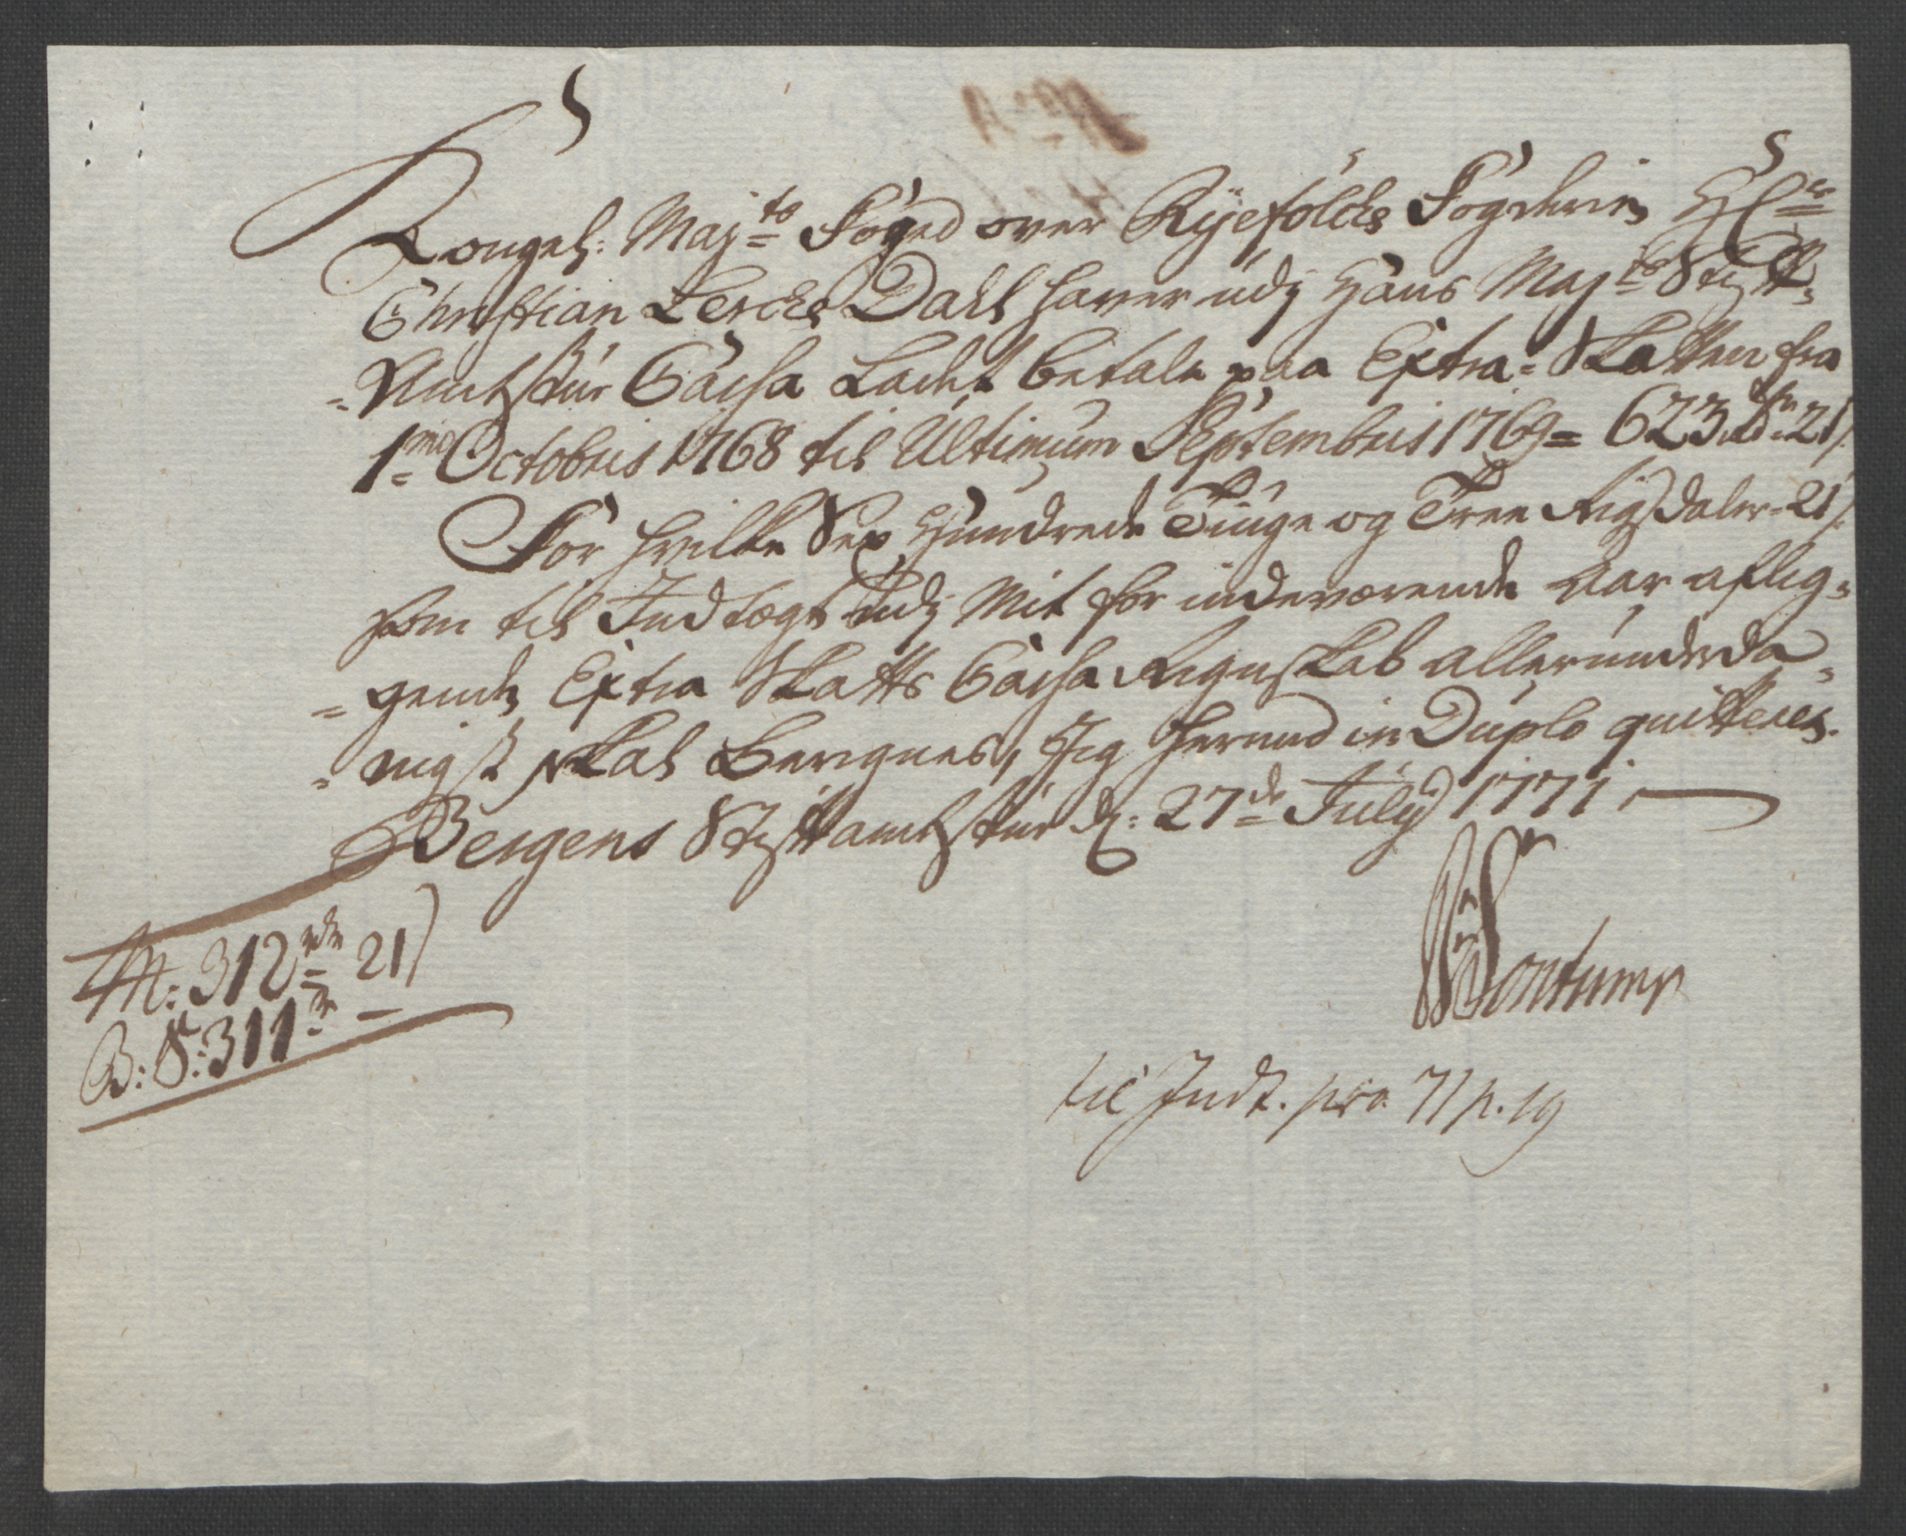 Kongel: Maj:ts Foged over Ryefölcke Fogderie, Hr:
Christian Lercke Dahl haver udj Hans Maj:ts Stift-
-Amtstur Cassa Ladet betale paa Extra-Skatten fra
1:me Octobris 1768 til Ultimum Septembris 1769 = 623 rdr: 21 s:
For hvilke Sex Hundrede Tiuge og Tree Rigsdaler 21 s:
som til Indtægt udj Mit for indeværende Aar aflig-
-gende Extra Skatts Cassa Regnskab allerunderda-
-nigst skal beregnes, Jeg herved in Duplo quitterer.
Bergens Stiftamtstur d: 27de July 1771
M: 312 rdr 21 s
B: S: 311 r –
Sontump
til Indt. pro 71 p. 19